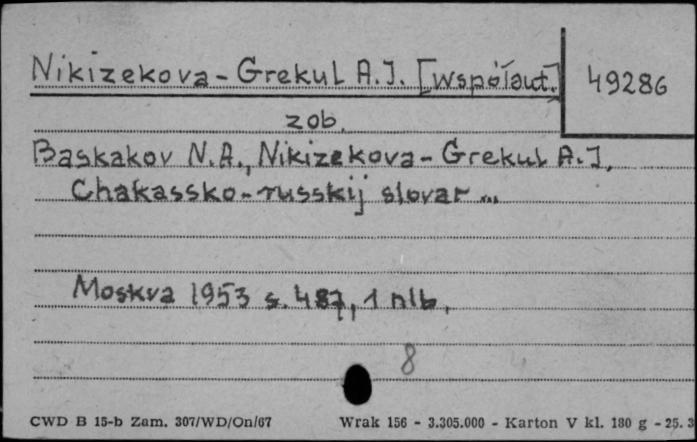 Nikizekova - Grekul A.I. [współaut.] 49286
zob.
Baskakov N.A., Nikizekova - Grekul A.I.
Chakassko-russkij slovar...
Moskva 1953 s. 487, 1 nlb.
8
CWD B 15-b Zam. 307/WD/On/67 Wrak 156 - 3.305.000 - Karton V kl. 180 g - 25.